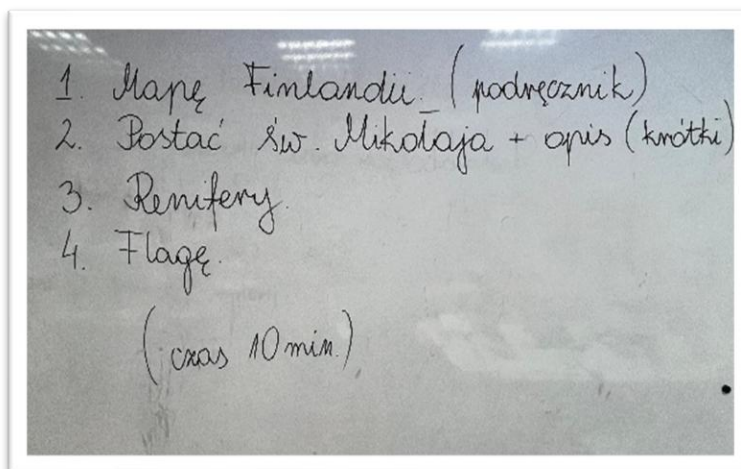 1. Mapę Finlandii. (podręcznik)
2. Postać św. Mikołaja + opis (krótki)
3. Renifery.
4. Flagę.
(czas 10 min.)